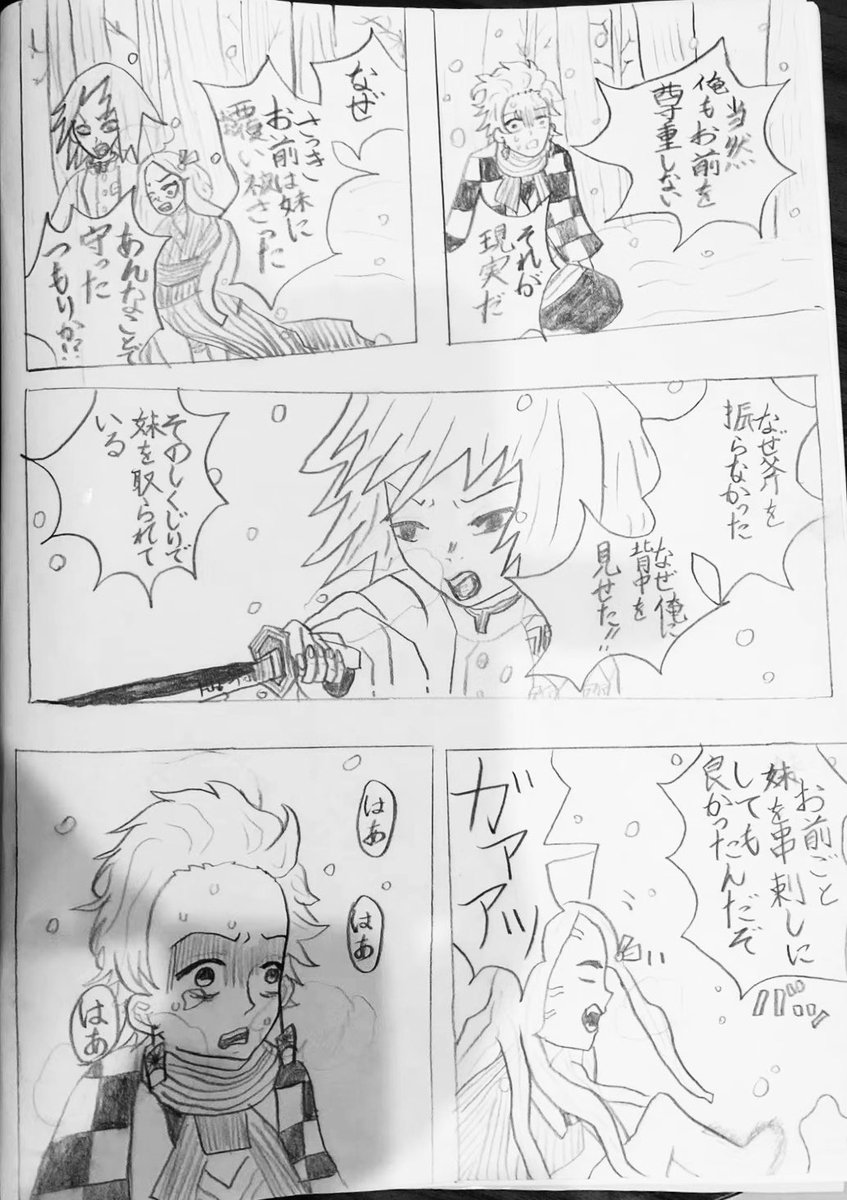 当然
俺もお前を
尊重しない
それが
現実だ
なぜ
さっき
お前は妹に
覆い被さった
あんなことで
守った
つもりか!?
なぜ斧を
振らなかった
なぜ俺に
背中を
見せた!!
そのしくじりで
妹を取られて
いる
お前ごと
妹を串刺しに
しても
良かったんだぞ
ガァアアッ
はあ
はあ
はあ